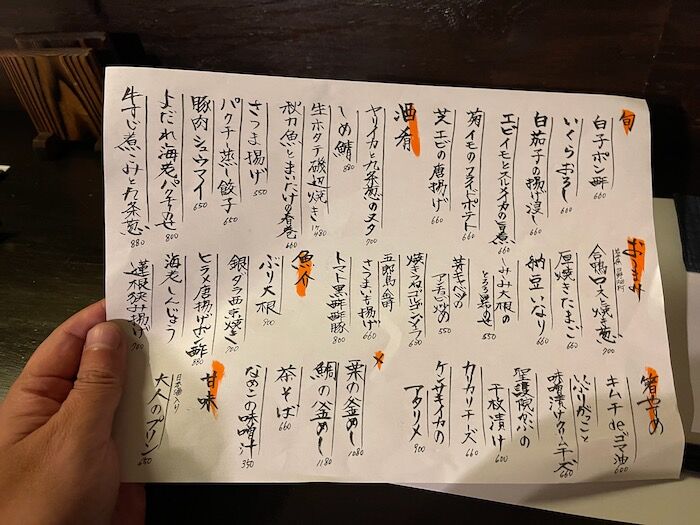 旬
白子ポン酢 660
いくらおろし 660
白茄子の揚げ浸し 660
エビイモとスルイカの旨煮 660
菊イモのフライドポテト 660
芝エビの唐揚げ 660
酒肴
ヤリイカと九条葱のヌタ 700
しめ鯖 880
生ホタテ磯辺焼き 480
秋刀魚とまいたけの春巻 660
さつま揚げ 550
パクチー蒸し餃子 650
豚肉シュウマイ 650
よだれ海老パクチーのせ 800
牛すじ煮こみと九条葱 880
おつまみ
合鴨ロースと焼き葱 900
厚焼きたまご 660
納豆いなり 660
みみ大根の
とろろ昆布のせ 550
芽キャベツの
アンチョビ炒め 550
焼き万願寺
さつまいも揚げ 660
五郎島金時
トマト黒酢酢豚 800
魚介
ぶり大根 900
銀ダラ西京焼き
ヒラメ唐揚げポン酢 980
海老しんじょう
蓮根挟み揚げ 900
箸やすめ
キムチdeゴマ油
いぶりがっこ
味噌漬けクリームチーズ 660
聖護院かぶの
千枚漬け 600
カリカリチーズ 660
ケンサキイカの
アタリメ 900
〆
菜の釜めし 1080
鯛の釜めし 1180
茶そば 660
なめこの味噌汁 350
甘味
日本酒入り
大人のプリン 650